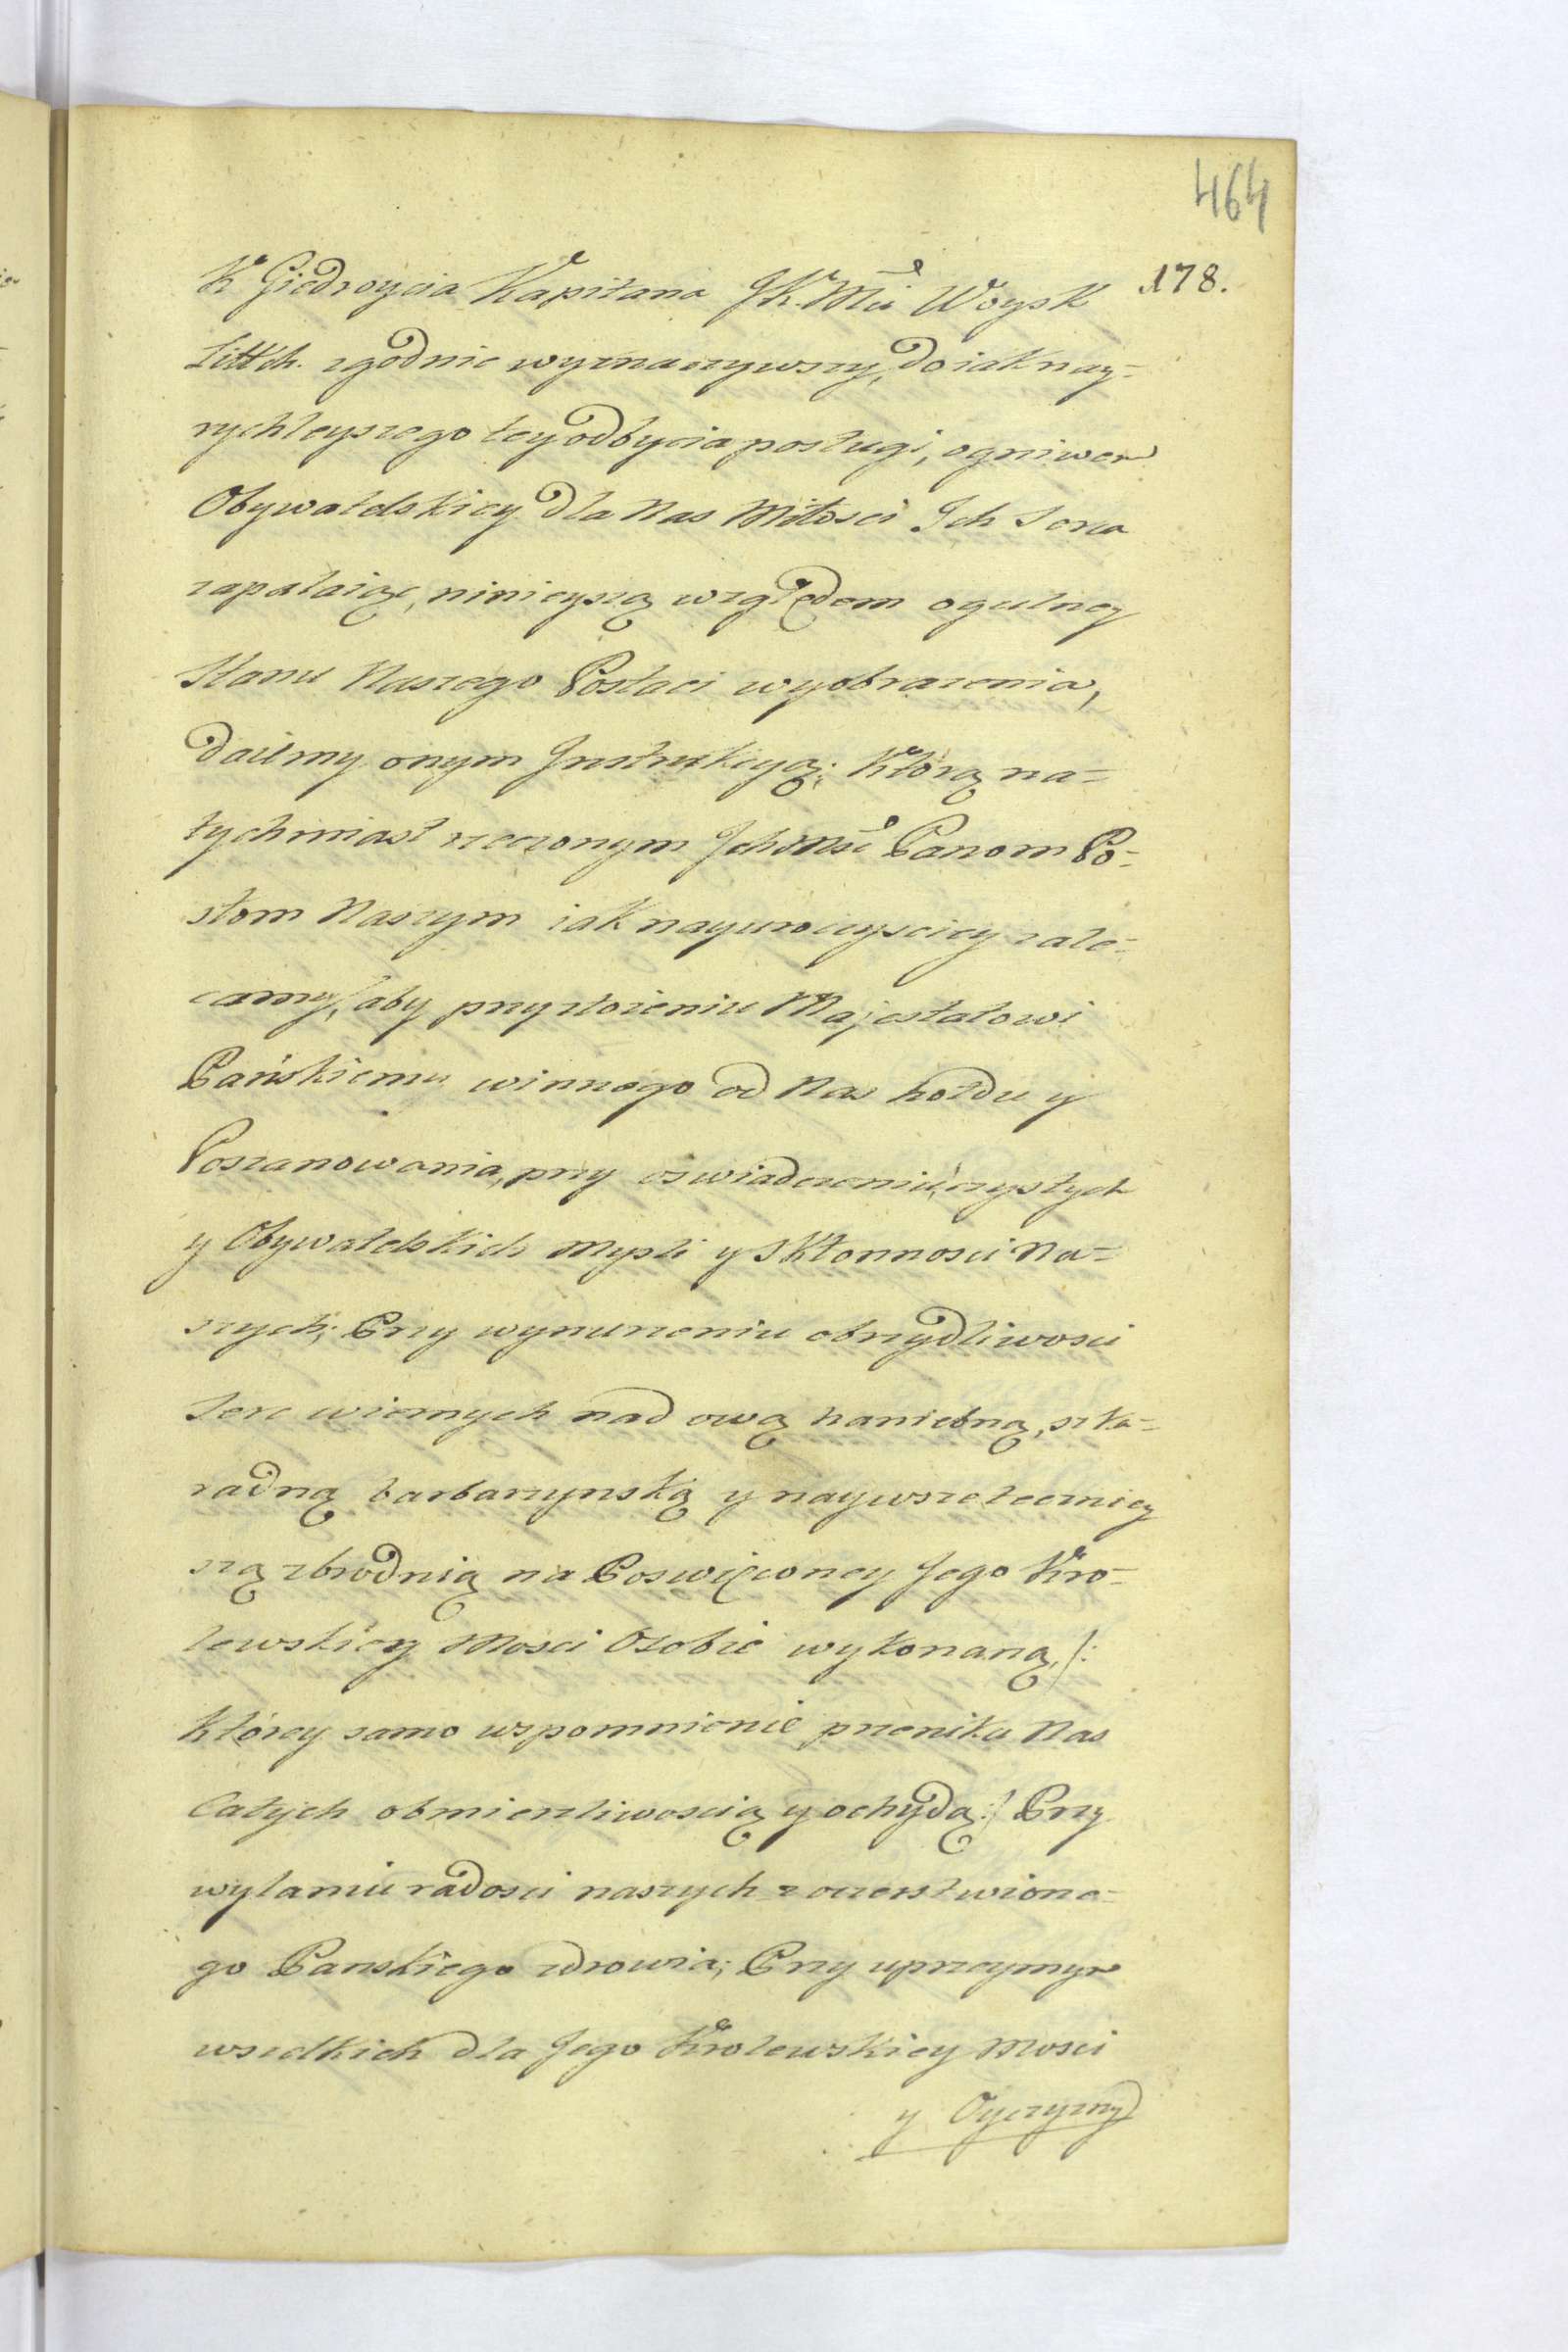 464
178.
K Giedroycia Kapitana JK. Mci Woysk
Littch. zgodnie wyznaczywszy, do iak nay-
rychleyszego tey odbycia posługi, ogniwem
Obywatelskiey dla Nas Miłosci Ich Serca
zapalaiąc, ninieyszą względem ogulney
Stanu Naszego Postaci wyobrazenia,
daiemy onym Instrukcyą; Którą na-
tychmiast rzeczonym Ichmść Panom Po-
słom Naszym iak nayuroczysciey zale-
camy, aby przy złożeniu Majestatowi
Pańskiemu winnego od Nas hołdu y
Poszanowania, przy oswiadczeniu czystych
y Obywatelskich Mysli y Skłonnosci Na-
szych; Przy wynurzeniu obrzydliwosci
Serc wiernych nad ową haniebną, szka-
radną barbarzynską y naywszeteczniey
szą zbrodnią na Poswięconey Jego Kro-
lewskiey Mosci Osobie wykonaną, /:
Którey samo wspomnienie przenika Nas
Całych obmierzliwoscią y ochydą :/ Przy
wylaniu radosci naszych z oczerstwione-
go Panskiego zdrowia; Przy uprzeymym
wszelkich dla Jego Krolewskiey Mosci
y Oyczyzny